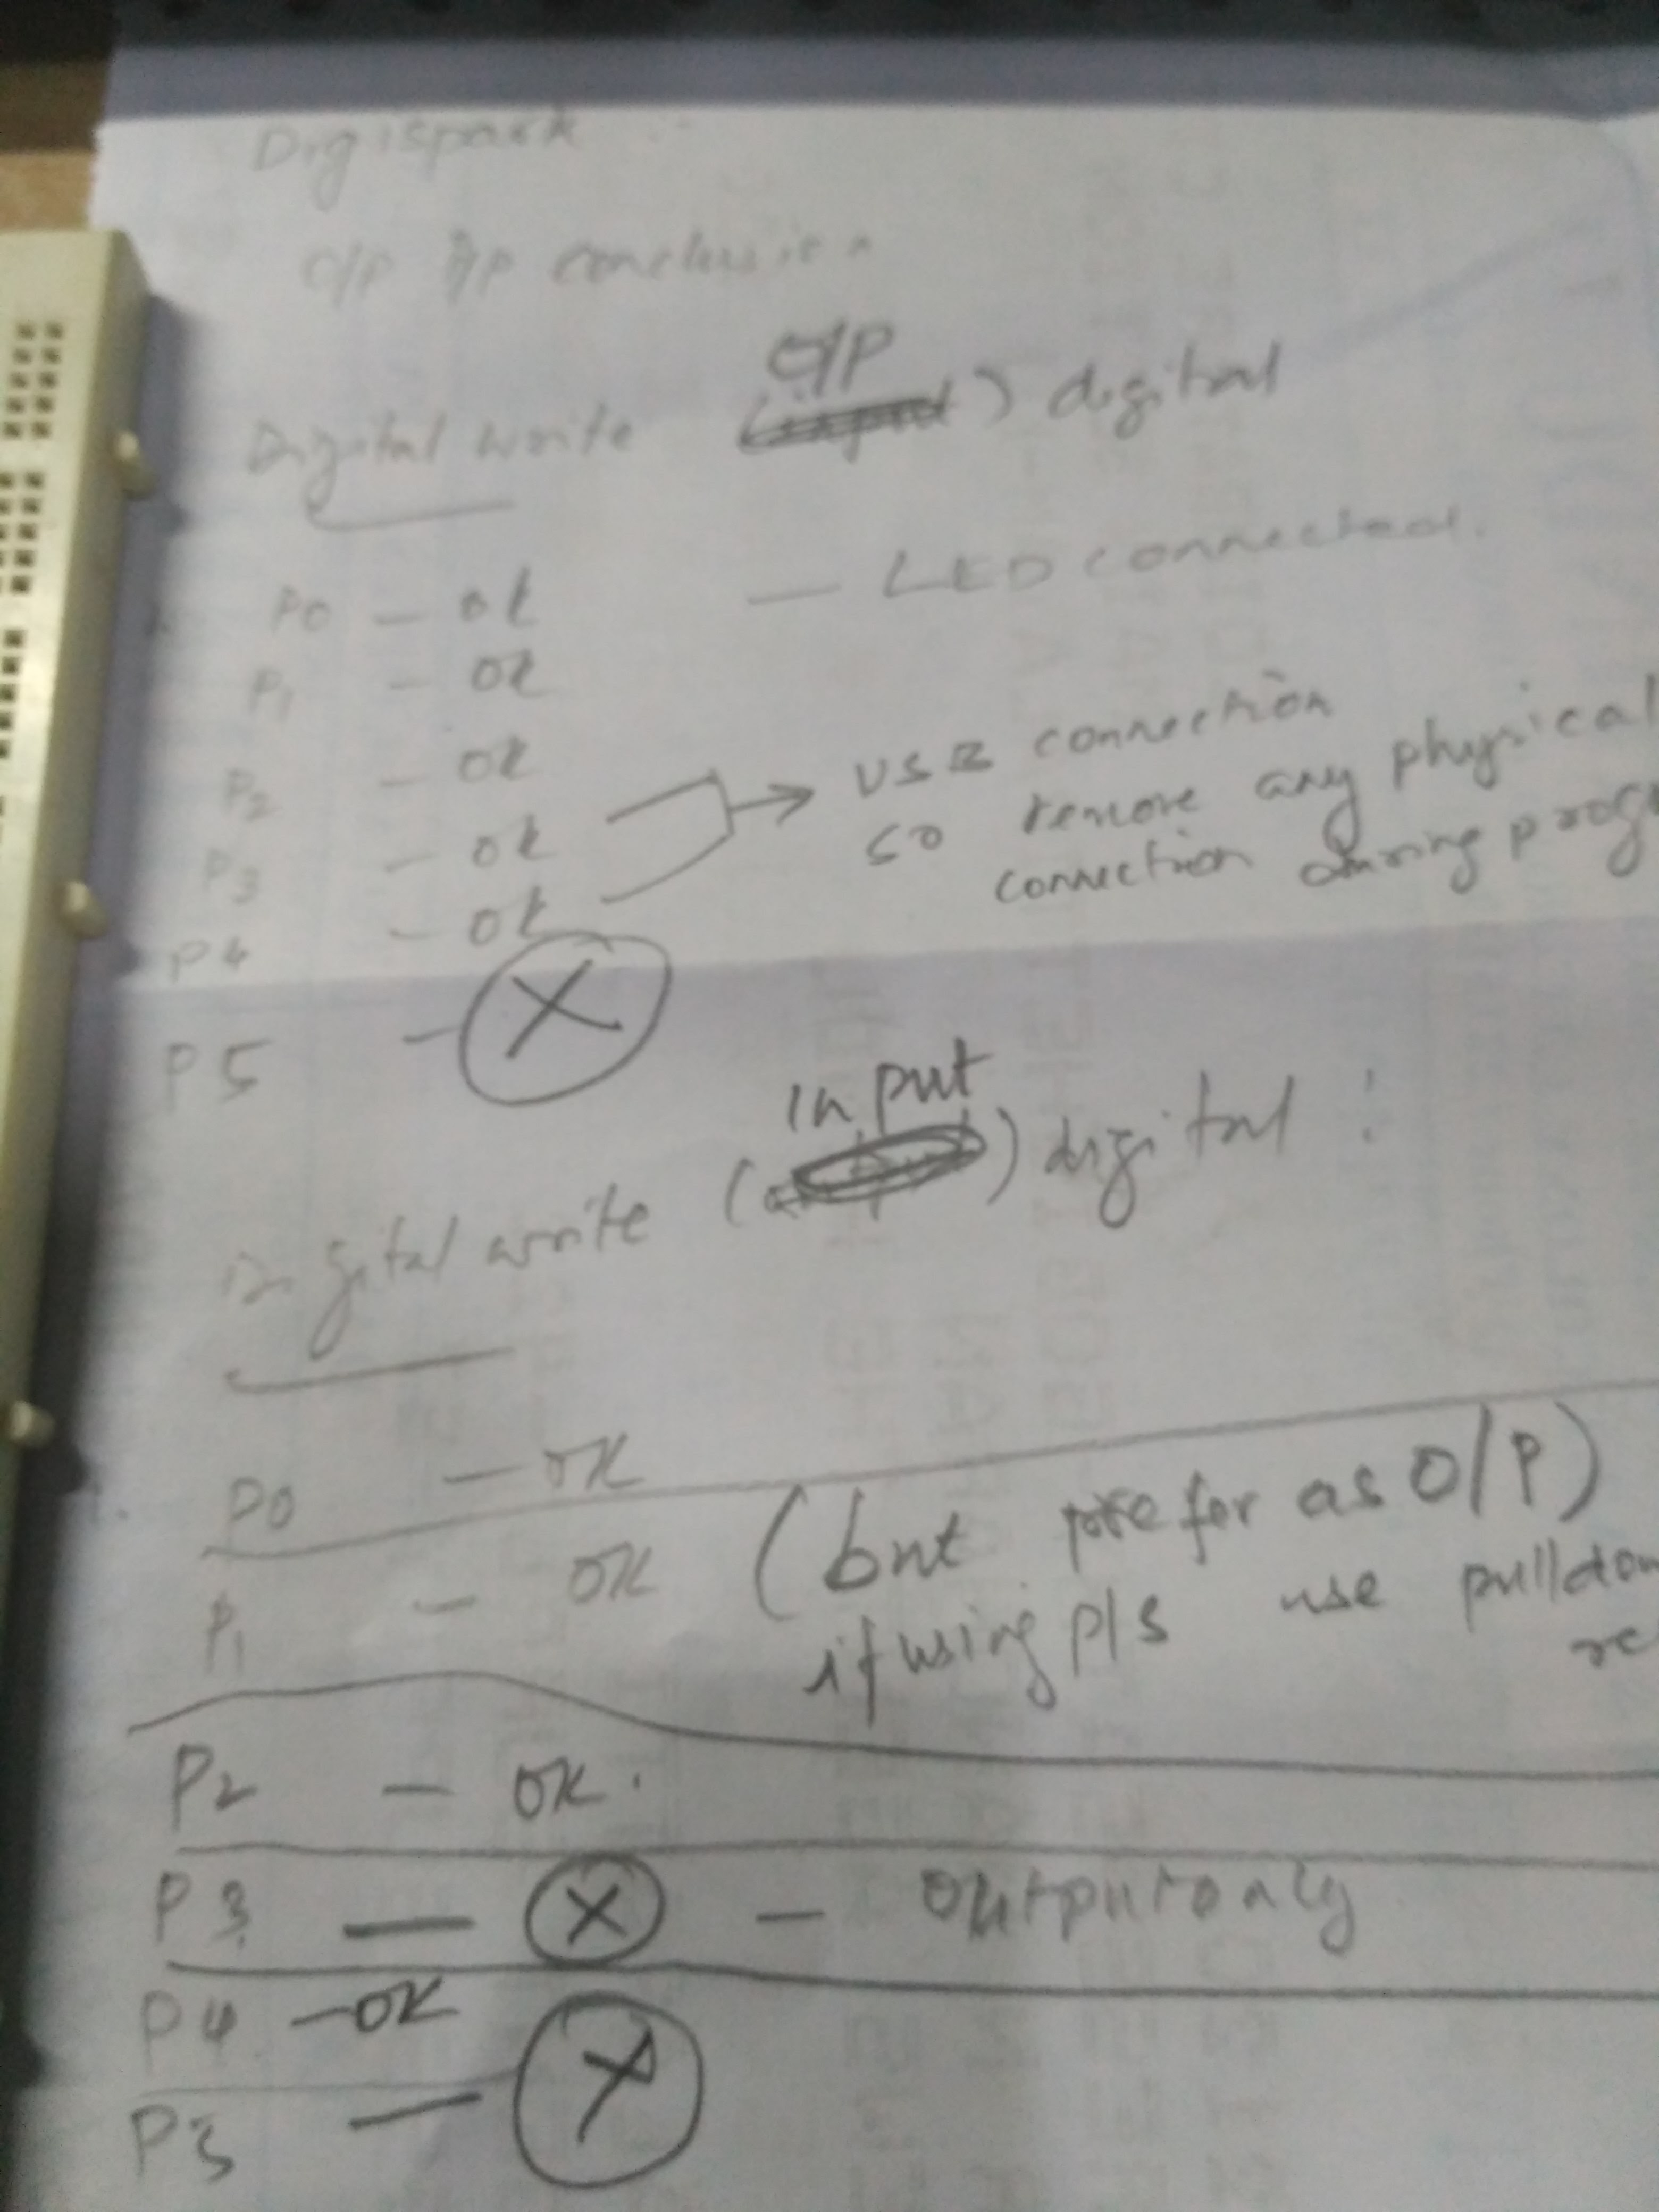 Digispark :-
O/P I/P conclusion
O/P
Digital write ( ) digital
P0 - ok - LED connected.
P1 - ok
P2 - ok
P3 - ok → USB connection
P4 - ok so remove any physical
connection during progr
P5 - X
input
Digital write ( ) digital :
P0 - OK
P1 - OK (but prefer as O/P)
if using P/S use pulldow
re
P2 - OK.
P3 - X - output only
P4 - OK
P5 - X